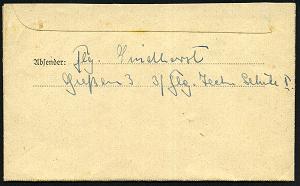 Absender: Flg. Windhorst
Gießen 3 3/Flg. Techn. Schule I.